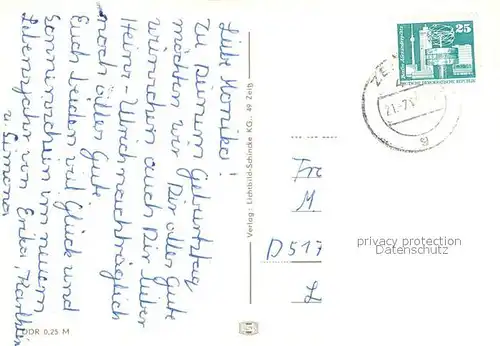 Liebe Monika!
Zu Deinem Geburtstag
möchten wir Dir alles Gute
wünschen auch Dir lieber
Heinz-Ulrich nachträglich
noch alles Gute.
Euch beiden viel Glück und
Sonnenschein im neuem
Lebensjahr von Erika, Karlheinz
u. Simona
DDR 0,25 M
Verlag: Lichtbild-Schincke KG., 49 Zeitz
25
Berlin, Alexanderplatz
DEUTSCHE DEMOKRATISCHE REPUBLIK
ZE
21.-7.
g
Fr
M
D 517
privacy protection
Datenschutz